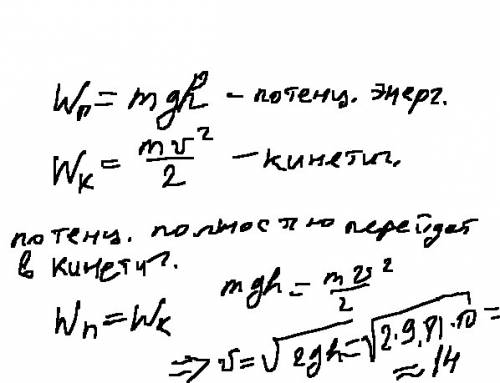 Wп = mgh – потенц. энерг.
Wк = mv²/2 – кинетич.
потенц. полностью перейдет
в кинетич.
mgh = mv²/2
Wп = Wк
=> v = √2gh = √2·9,81·10 =
≈ 14